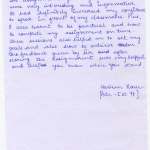 was very interesting and informative.
It had definitely increased my confidence
to speak in front of my classmates. Plus,
I also learnt to be punctual and how
to complete my assignment on time.
This session also helped me to set my
goals and also how to achieve them.
The feedback given by Sir and after
seeing the Assignment was very helpful
and helped you know where you stand.
Harleen Kaur